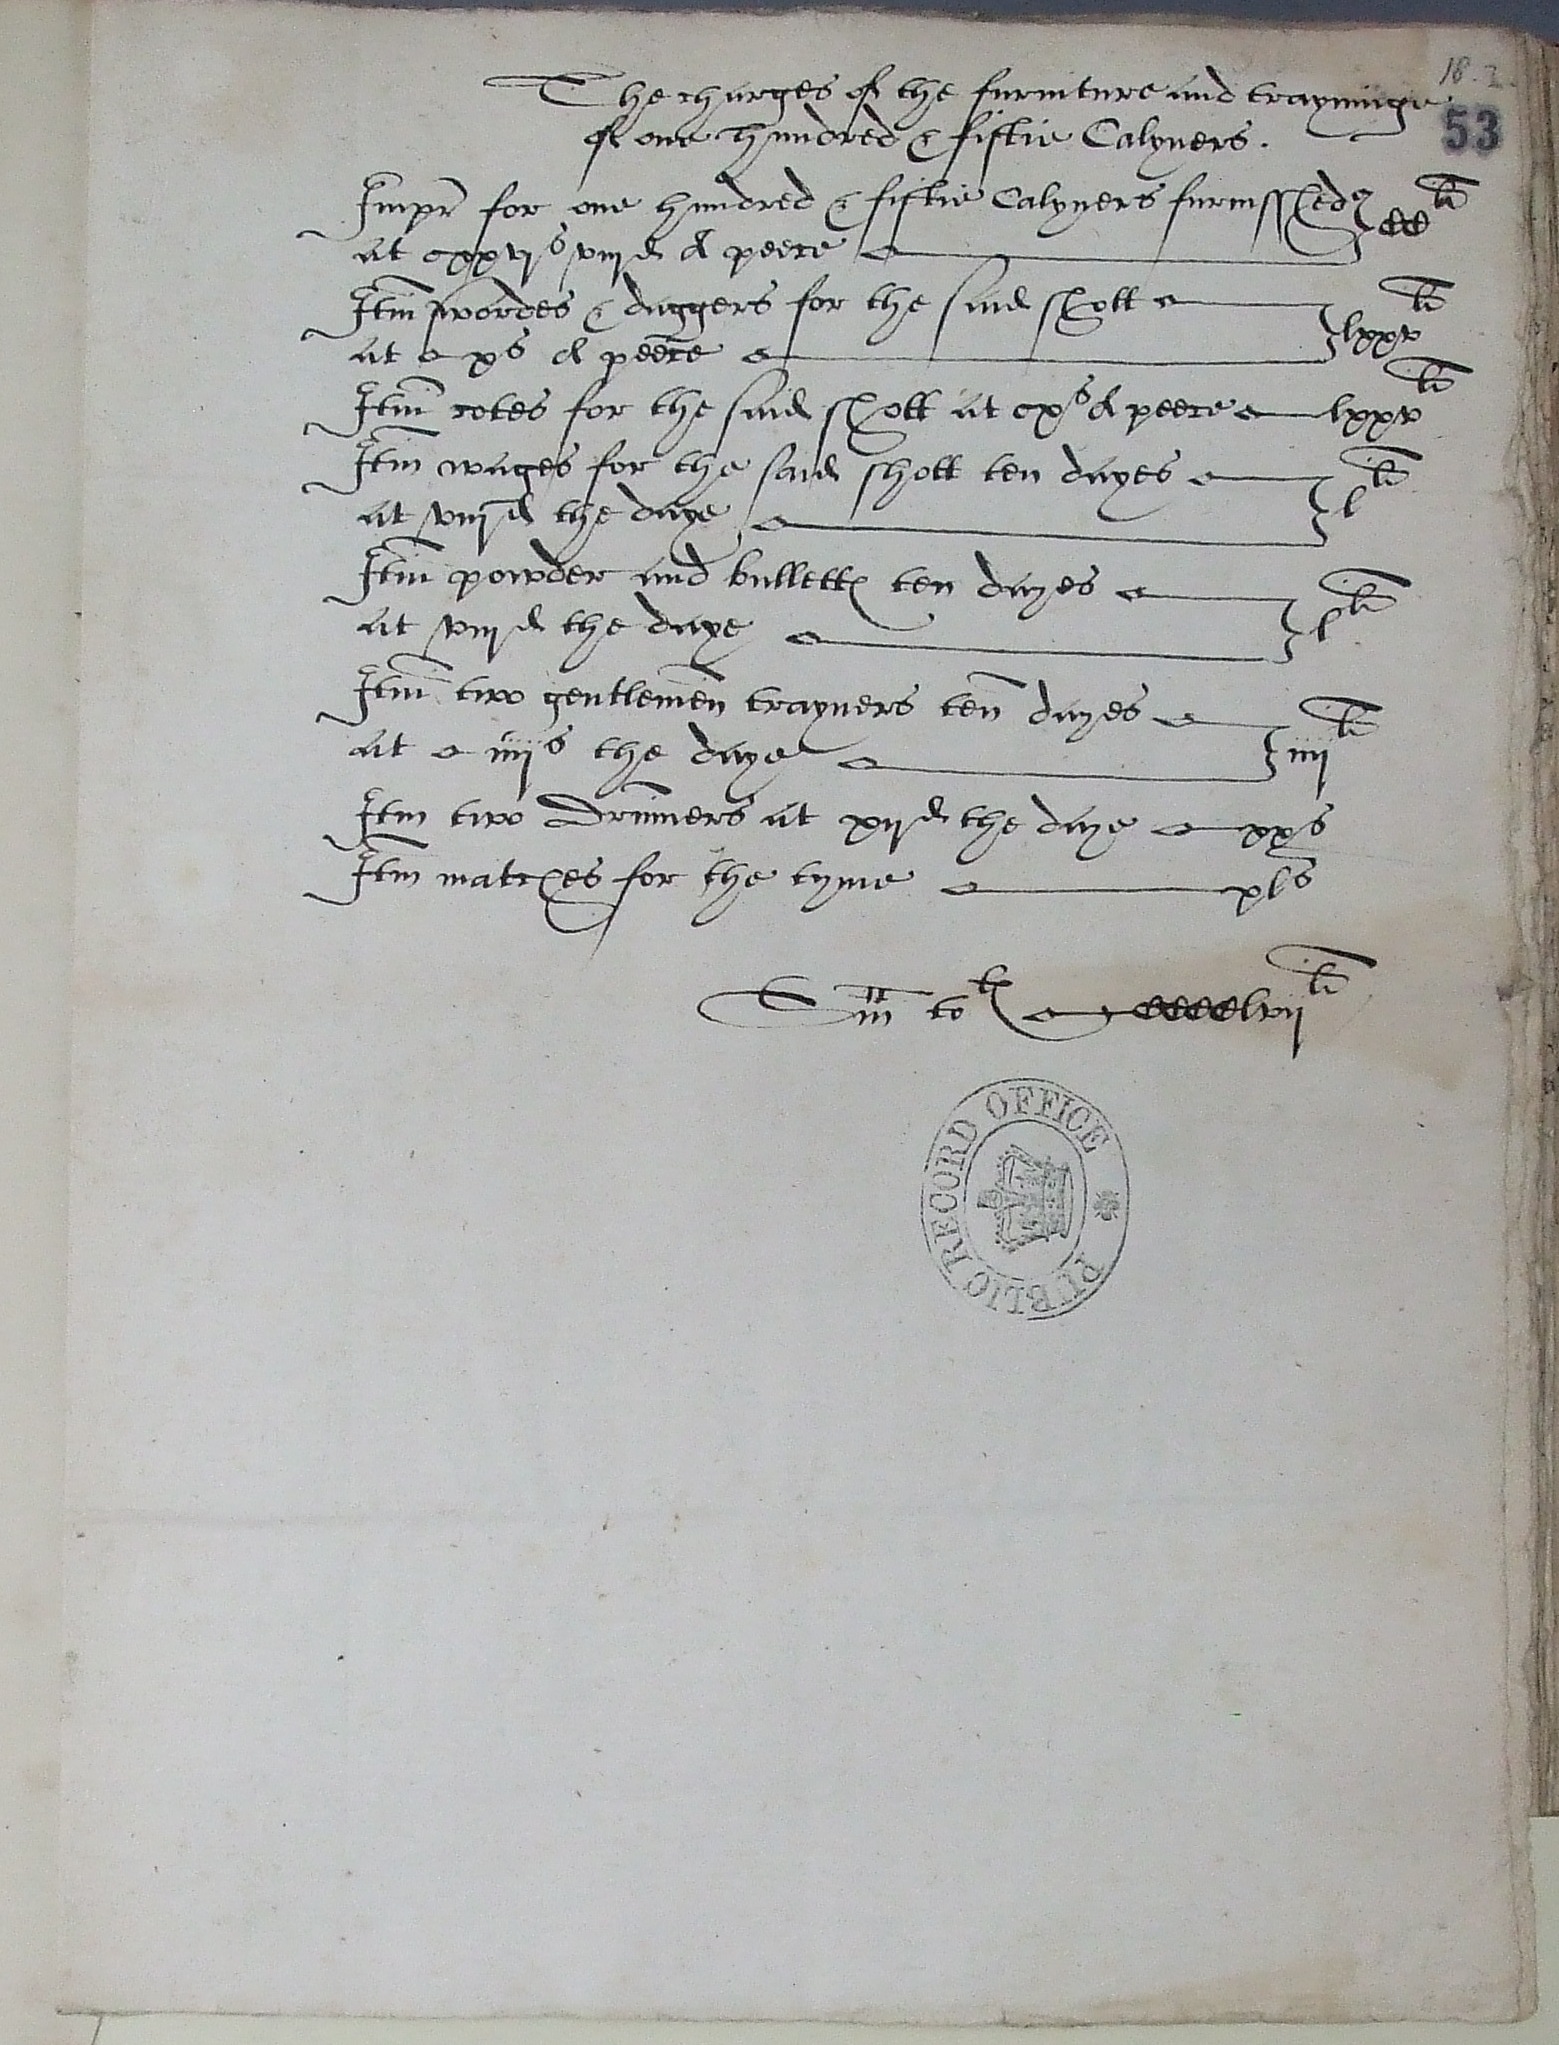 18.2.
53
The charges of the furniture and trayninge
of one hundred & fiftie Calyvers.
Impr for one hundred & fiftie Calyvers furnisshed
at xxvjs viijd A peece CCli
Itm swordes & daggers for the said shott
at xs A peece lxxvli
Itm cotes for the said shott at xs A peece lxxvli
Itm wages for the said shott ten dayes
at viijd the daye lli
Itm powder and bullettes ten dayes
at viijd the daye lli
Itm two gentlemen trayners ten dayes
at iiijs the daye iiijli
Itm two Drumers at xijd the daye xxs
Itm matches for the tyme xls
Sm totles CCCClvijli
PUBLIC RECORD OFFICE